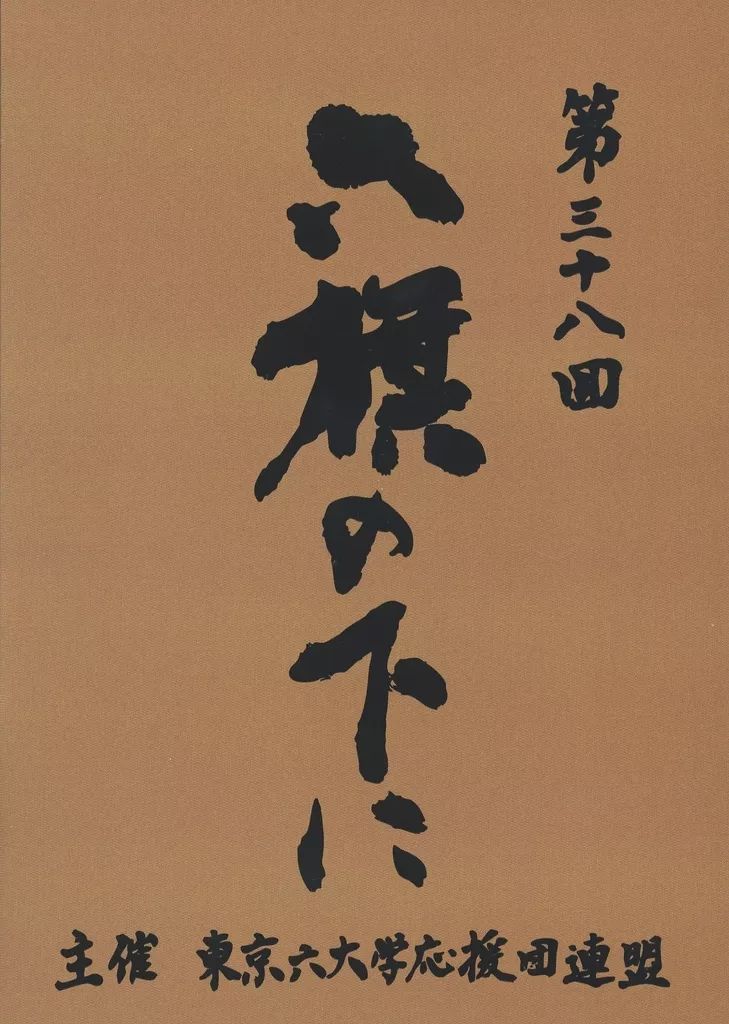 第三十八回
六旗の下に
主催 東京六大学応援団連盟